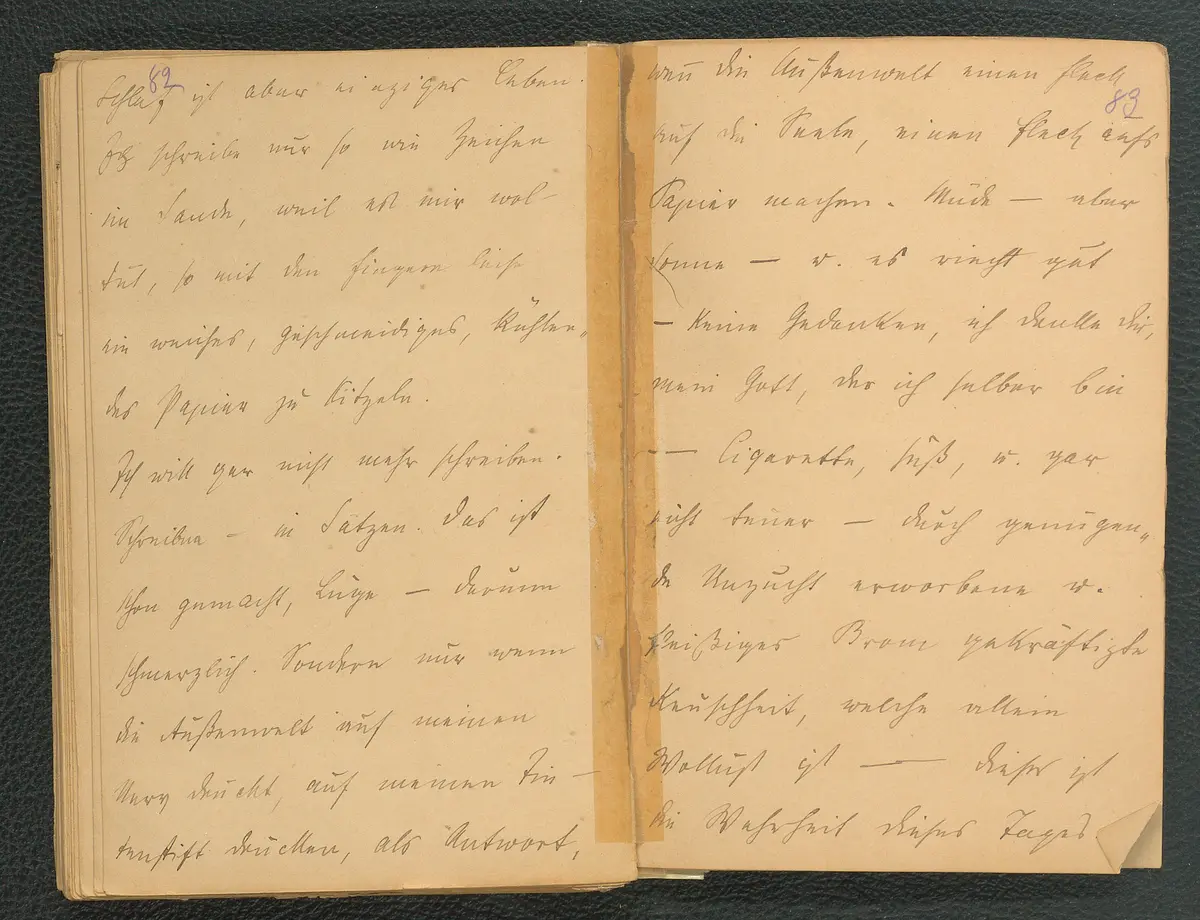 82
Schlaf ist aber einziges Leben.
Ich schreibe nur so wie Zeichen
im Sande, weil es mir wol-
tut, so mit den Fingern leise
ein weiches, geschmeidiges, kühlen-
des Papier zu kitzeln.
Ich will gar nicht mehr schreiben.
Schreiben – in Sätzen. Das ist
schon gemacht, Lüge – darum
schmerzlich. Sondern nur wenn
die Außenwelt auf meinen
Nerv drückt, auf meinen Tin-
tenstift drücken, als Antwort,
83
wenn die Außenwelt einen Fleck
auf die Seele, einen Fleck aufs
Papier machen. Müde – aber
Sonne – u. es riecht gut
– keine Gedanken, ich danke dir,
mein Gott, der ich selber bin
–– Cigarette, süß, u. gar
nicht teuer – durch genügen-
de Unzucht erworbene u.
fleißiges Brom gekräftigte
Keuschheit, welche allein
Wollust ist –– dieses ist
die Wahrheit dieses Tages